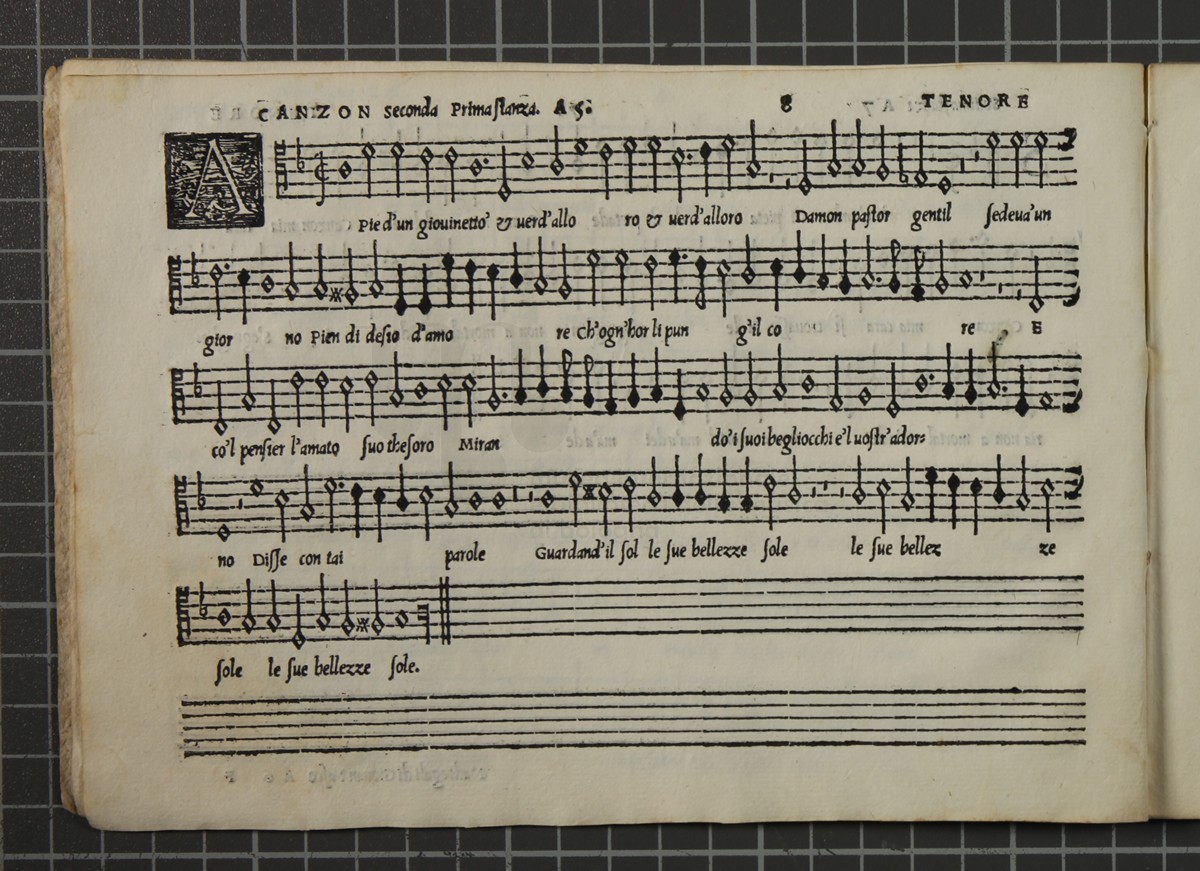 CANZON Seconda Prima stanza. A 5. 8 TENORE
A Pie d'un giouinetto' & uerd'allo ro & uerd'alloro Damon pastor gentil sedeua'un
gior no Pien di desio d'amo re Ch'ogn'hor li pun g'il co re E
co'l pensier l'amato suo thesoro Miran do'i suoi begliocchi e'l uostr'ador=
no Disse con tai parole Guardand'il sol le sue bellezze sole le sue bellez ze
sole le sue bellezze sole.